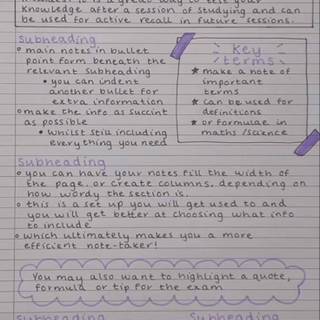 knowledge after a session of studying and can
be used for active recall in future sessions.
Subheading
main notes in bullet
point form beneath the
relevant subheading
you can indent
another bullet for
extra information
make the info as succint
as possible
whilst still including
everything you need
key
terms
make a note of
important
terms
can be used for
definitions
or formulae in
maths/science
Subheading
you can have your notes fill the width of
the page, or create columns, depending on
how wordy the section is.
this is a set up you will get used to and
you will get better at choosing what info
to include
which ultimately makes you a more
efficient note-taker!
You may also want to highlight a quote,
formula or tip for the exam
Subheading
Subheading